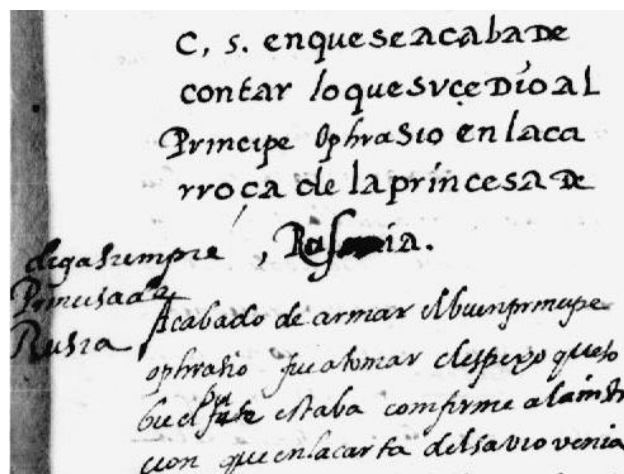 C, 5. en que se acaba de
contar lo que sucedio al
Principe Ophrasio en la ca
rroça de la princesa de
Rusia.
diga siempre
Princesa de
Rusia
Acabado de armar el buen principe
ophrasio fue a tomar el espejo que so
estaba comfirme a la instr
cion que en la carta del savio venia